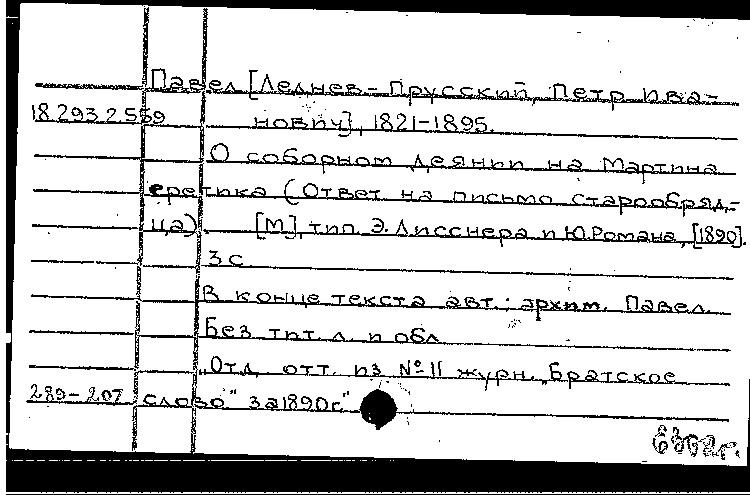 Павел [Леднев-Прусский, Петр Ива-
18.293.2.559 нович], 1821-1895.
О соборном деянии на Мартина
еретика (Ответ на письмо старообряд-
ца). [М], тип. Э. Лисснера и Ю. Романа, [1890].
3 с
В конце текста авт.: архим. Павел.
Без тит. л. и обл.
"Отд. отт. из № 11 журн. "Братское
289-207 слово" за 1890 г."